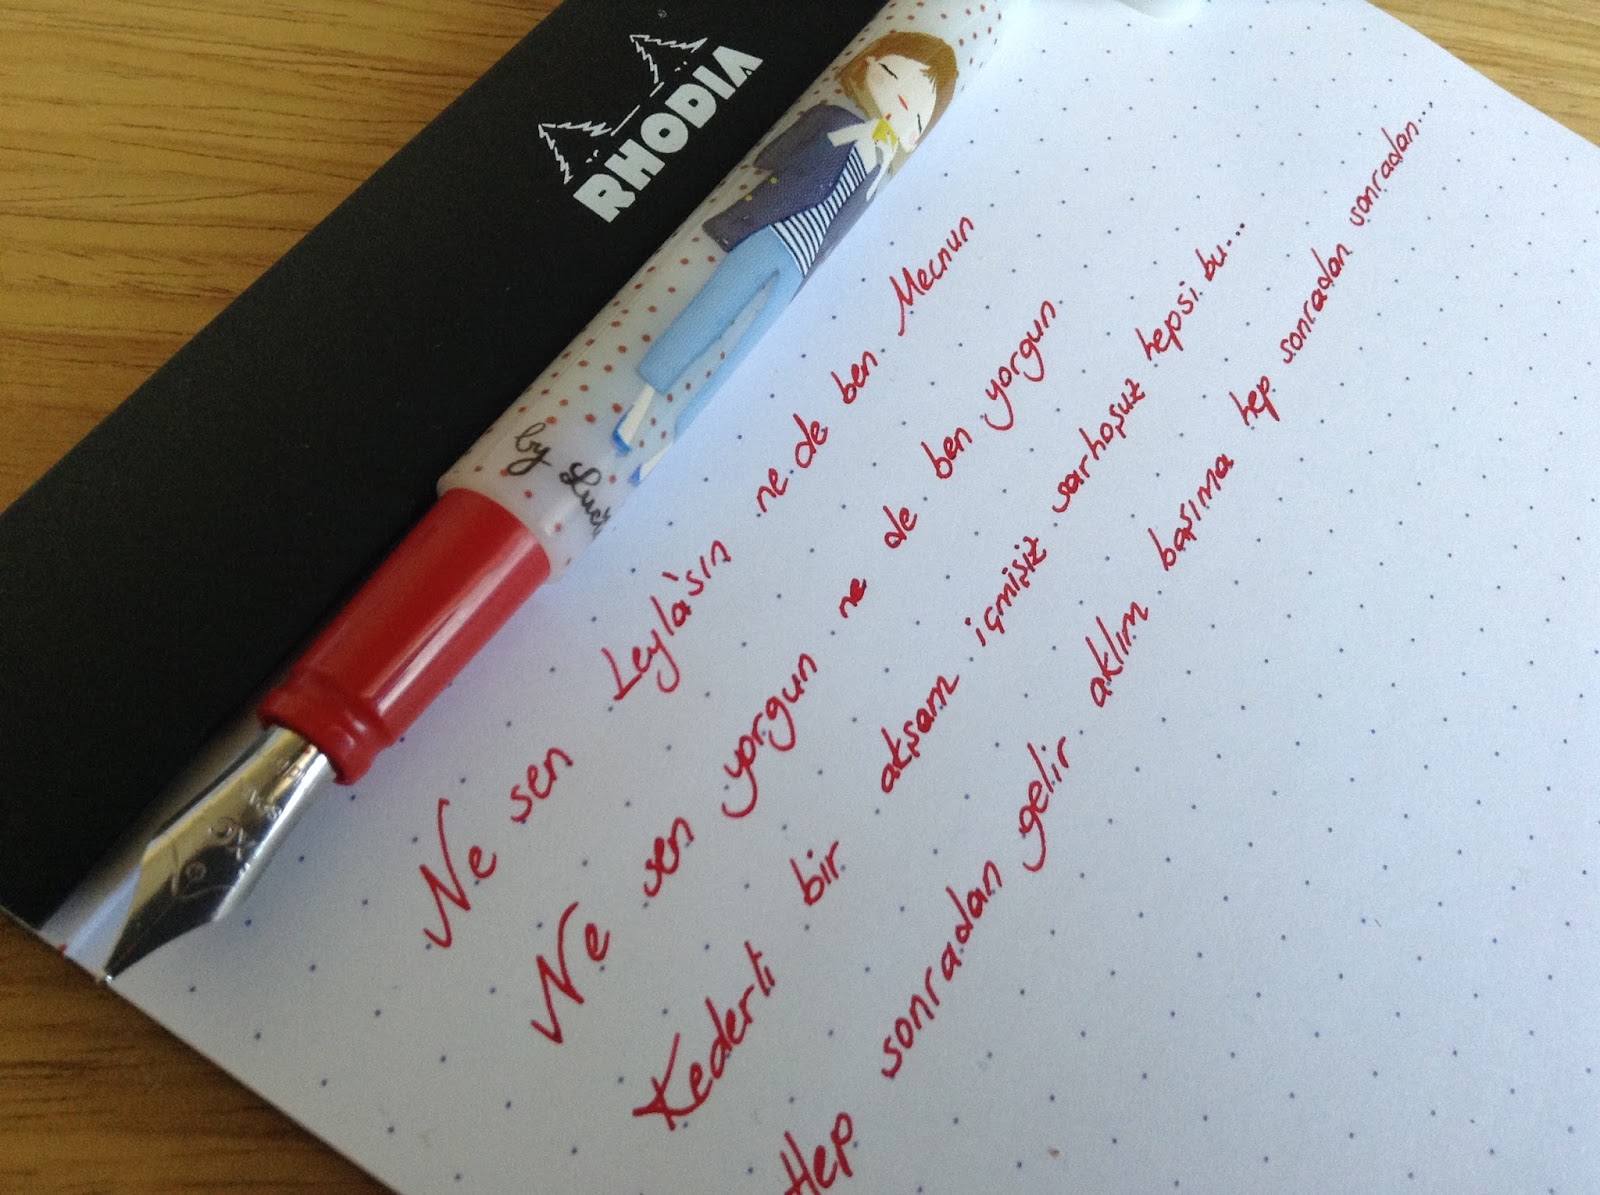 RHODIA
by Luci
Ne sen Leylâ'sın ne de ben Mecnun
Ne sen yorgun ne de ben yorgun
Kederli bir akşam içmişiz sarhoşuz hepsi bu...
Hep sonradan gelir aklım başıma hep sonradan sonradan...